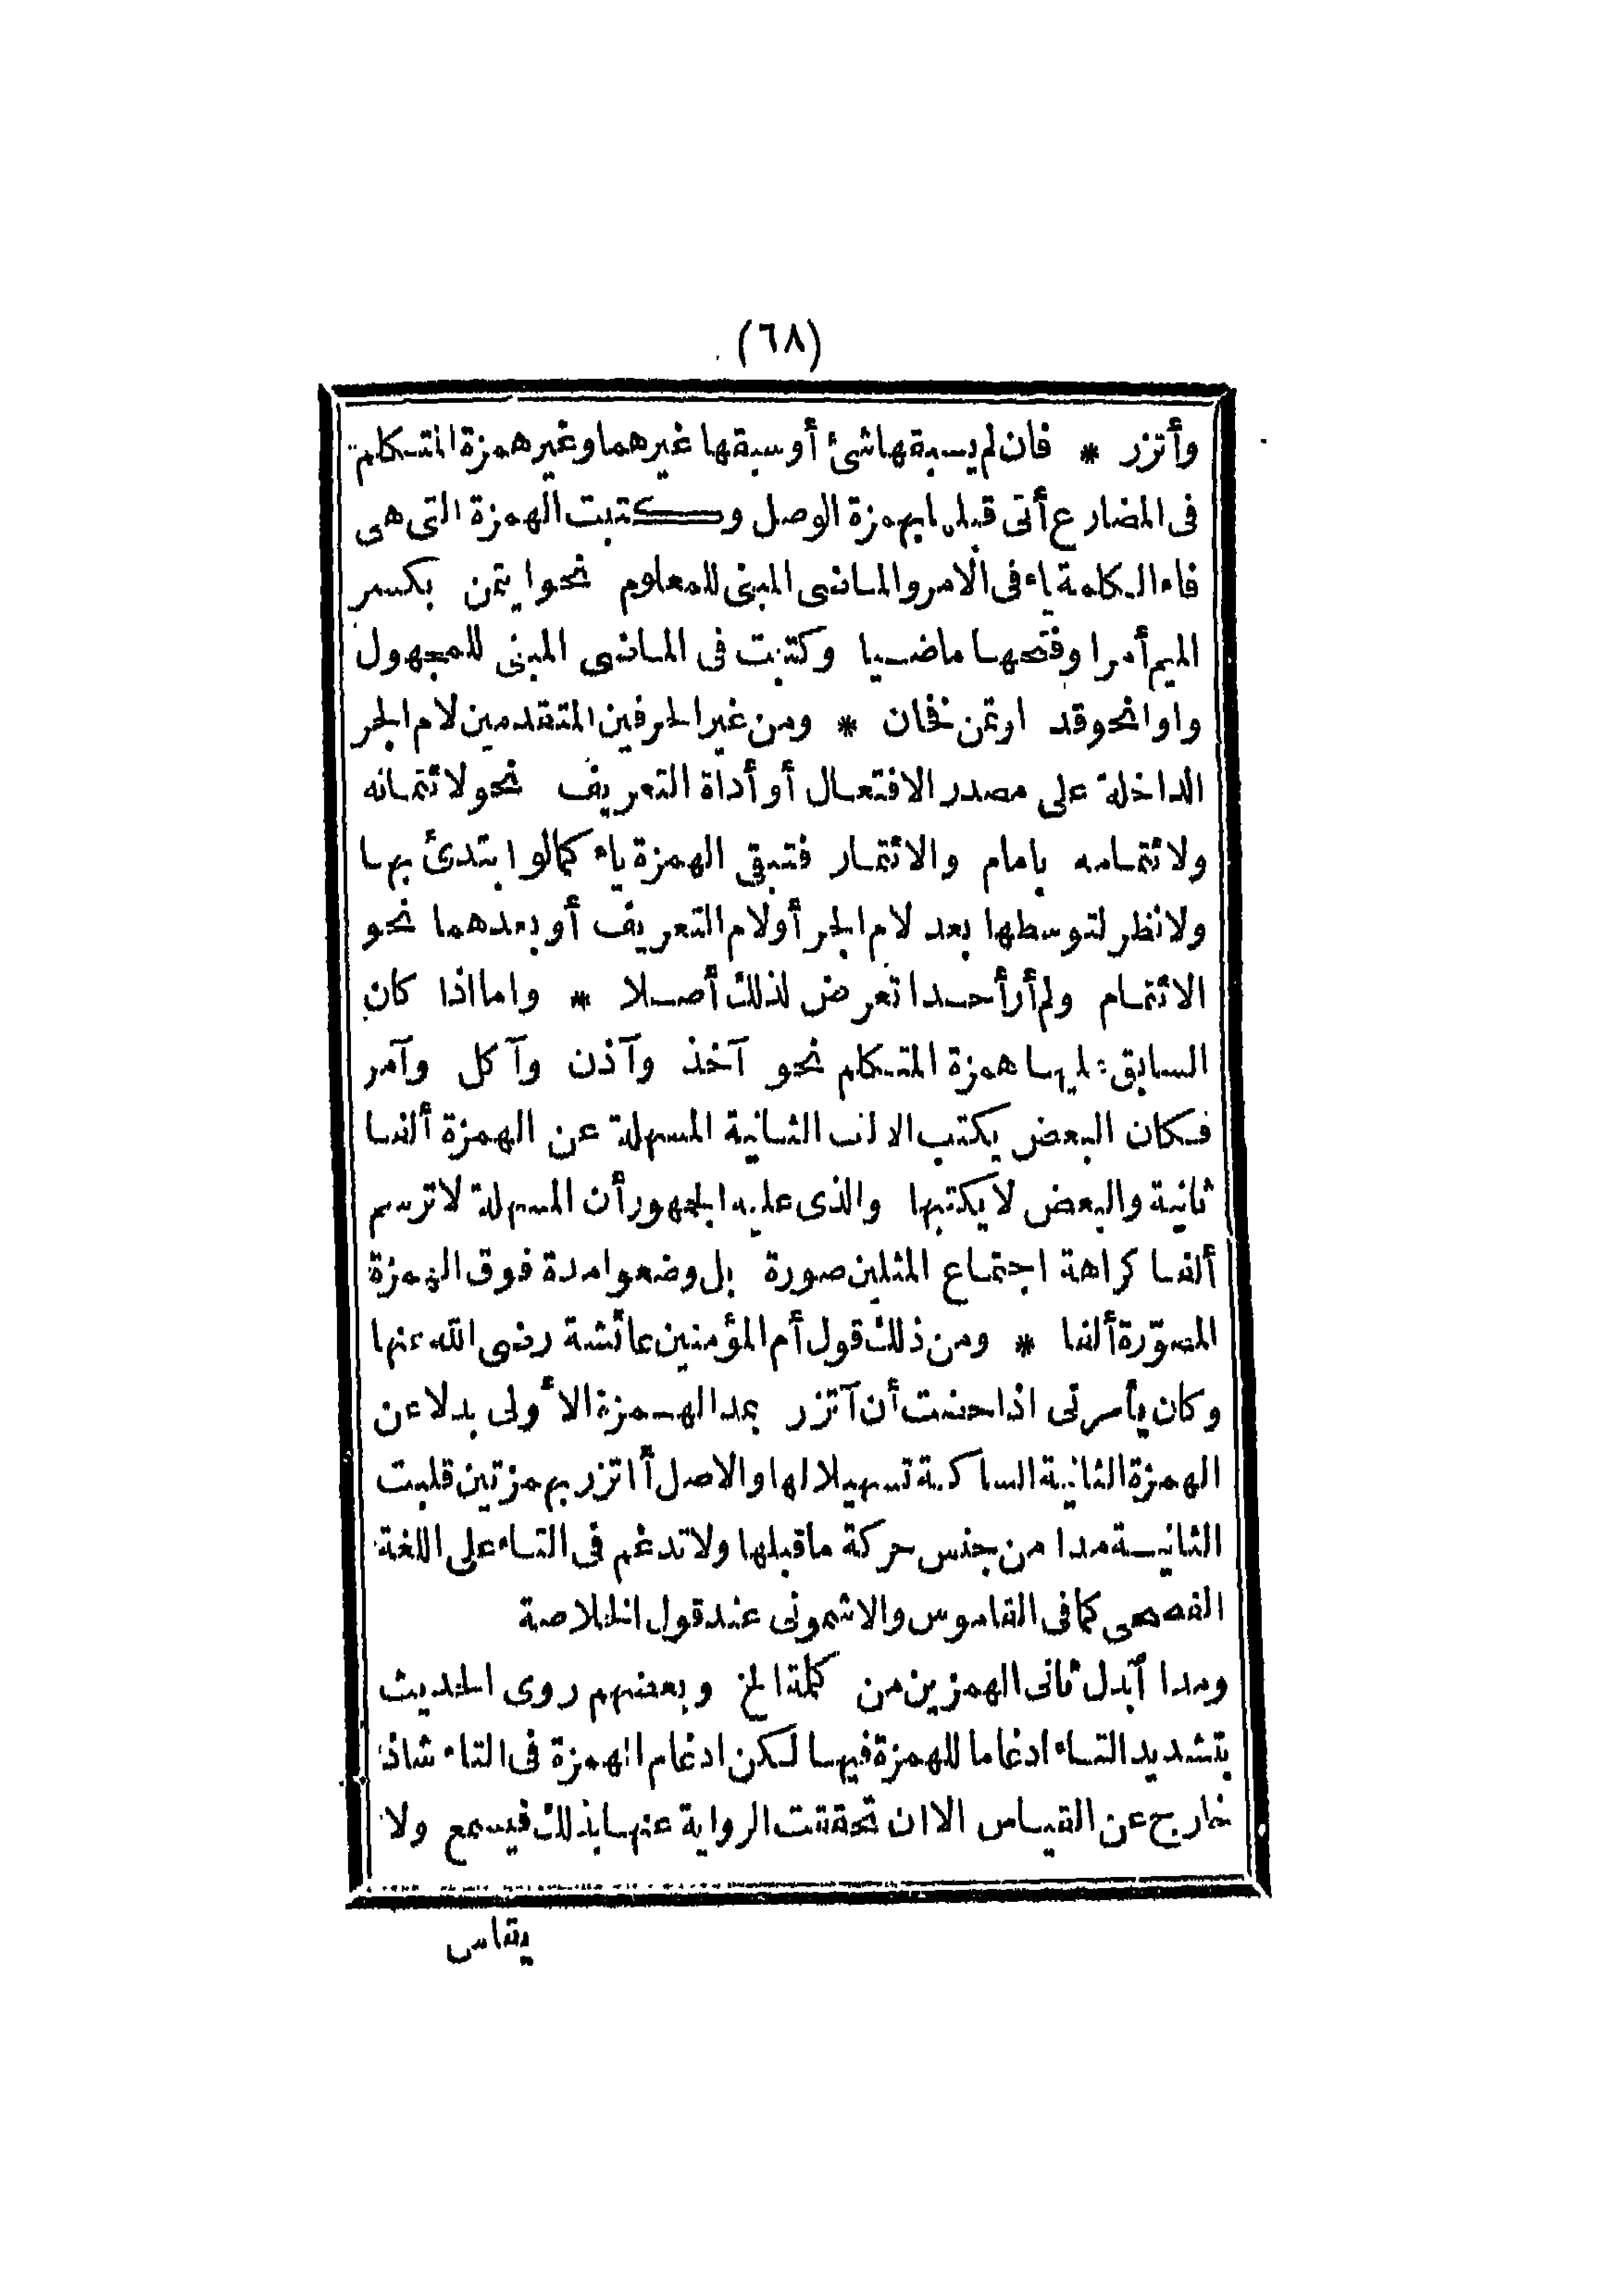 (٦٨)
وأتزر * فان لم يسبقها شئ أو سبقها غيرهما وغير همزة المتكلم
فى المضارع أتى قبلها بهمزة الوصل وكتبت الهمزة التى هى
فاء الكلمة ياء فى الامر والماضى المبنى للمعلوم نحو ايتمن بكسر
الميم أمرا وفتحها ماضيا وكتبت فى الماضى المبنى للمجهول
واوا نحو قد اوتمن فخان * ومن غير الحرفين المتقدمين لام الجر
الداخلة على مصدر الافتعال أو أداة التعريف نحو لائتمانه
ولائتمامه بامام والائتمار فتبقى الهمزة ياء كما لو ابتدئ بها
ولا نظر لتوسطها بعد لام الجر أو لام التعريف أو بعدهما نحو
الائتمام ولم أر أحدا تعرض لذلك أصلا * واما اذا كان
السابق عليها همزة المتكلم نحو آخذ وآذن وآكل وآمر
فكان البعض يكتب الالف الثانية المسهلة عن الهمزة ألفا
ثانية والبعض لا يكتبها والذى عليه الجمهور أن المسهلة لا ترسم
ألفا كراهة اجتماع المثلين صورة بل وضعوا مدة فوق الهمزة
المصوّرة ألفا * ومن ذلك قول أم المؤمنين عائشة رضى الله عنها
وكان يأمرنى اذا حضت أن آتزر بمد الهمزة الأولى بدلا عن
الهمزة الثانية الساكنة تسهيلا لها والاصل أاتزر بهمزتين قلبت
الثانية مدا من جنس حركة ما قبلها ولا تدغم فى التاء على اللغة
الفصحى كما فى القاموس والاشمونى عند قول الخلاصة
ومدا آبدل ثانى الهمزين من كلمة الخ وبعضهم روى الحديث
بتشديد التاء ادغاما للهمزة فيها لكن ادغام الهمزة فى التاء شاذ
خارج عن القياس الا ان تحققت الرواية عنها بذلك فيسمع ولا
يقاس